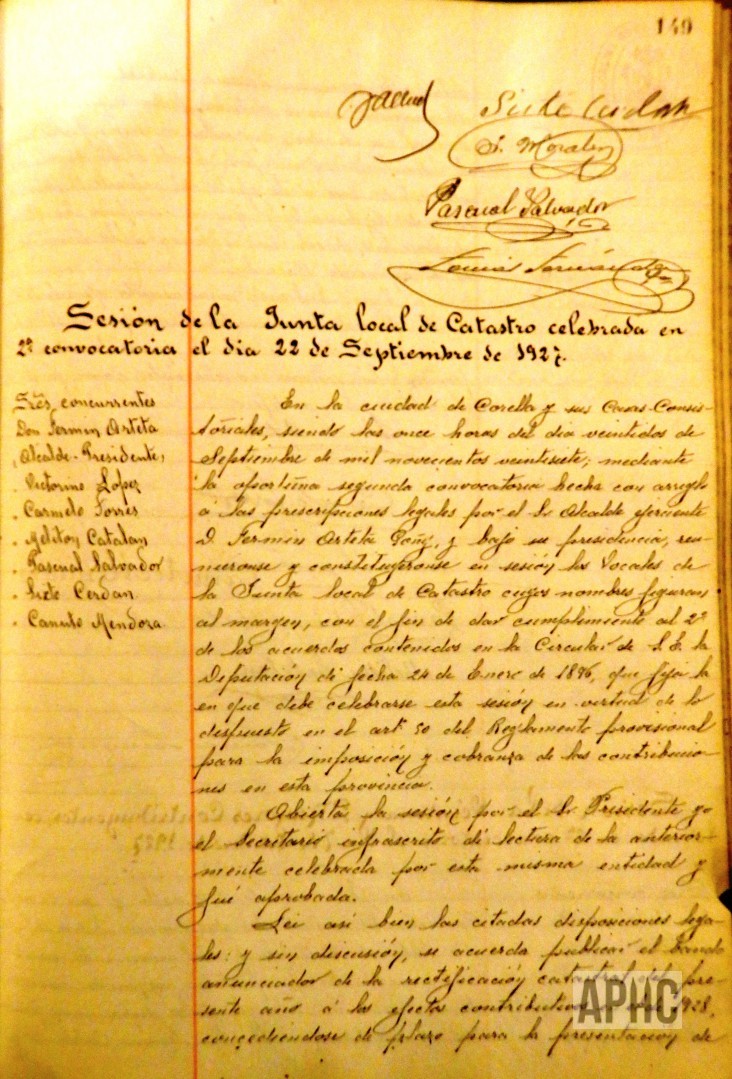 149
Sixto Cerdán
S. Morales
Pascual Salvador
Tomás Fernández
Sesión de la Junta local de Catastro celebrada en
2ª convocatoria el dia 22 de Septiembre de 1927.
Sres concurrentes
Don Fermin Arteta
Alcalde-Presidente,
" Victorino López
" Carmelo Torres
" Meliton Catalan
" Pascual Salvador
" Sixto Cerdan
" Canuto Mendoza
En la ciudad de Corella y sus Casas-Consis-
toriales, siendo las once horas del dia veintidos de
Septiembre de mil novecientos veintisiete; mediante
la oportuna segunda convocatoria hecha con arreglo
á las prescripciones legales por el Sr Alcalde ejerciente
D. Fermin Arteta Goñi, y bajo su presidencia, reu-
nieronse y constituyeronse en sesión los Vocales de
la Junta local de Catastro cuyos nombres figuran
al margen, con el fin de dar cumplimiento al 2º
de los acuerdos contenidos en la Circular de S. E. la
Diputación de fecha 24 de Enero de 1896, que fija la
en que debe celebrarse esta sesión en virtud de lo
dispuesto en el artº 50 del Reglamento provisional
para la imposición y cobranza de las contribucio-
nes en esta provincia.
Abierta la sesión por el Sr Presidente yo
el Secretario infrascrito dí lectura de la anterior-
mente celebrada por esta misma entidad y
fué aprobada.
Lei asi bien las citadas disposiciones lega-
les: y sin discusión, se acuerda publicar el bando
anunciador de la rectificación catastral del pre-
sente año á los efectos contributivos del 1928,
concediendose de plazo para la presentacion de
APHC